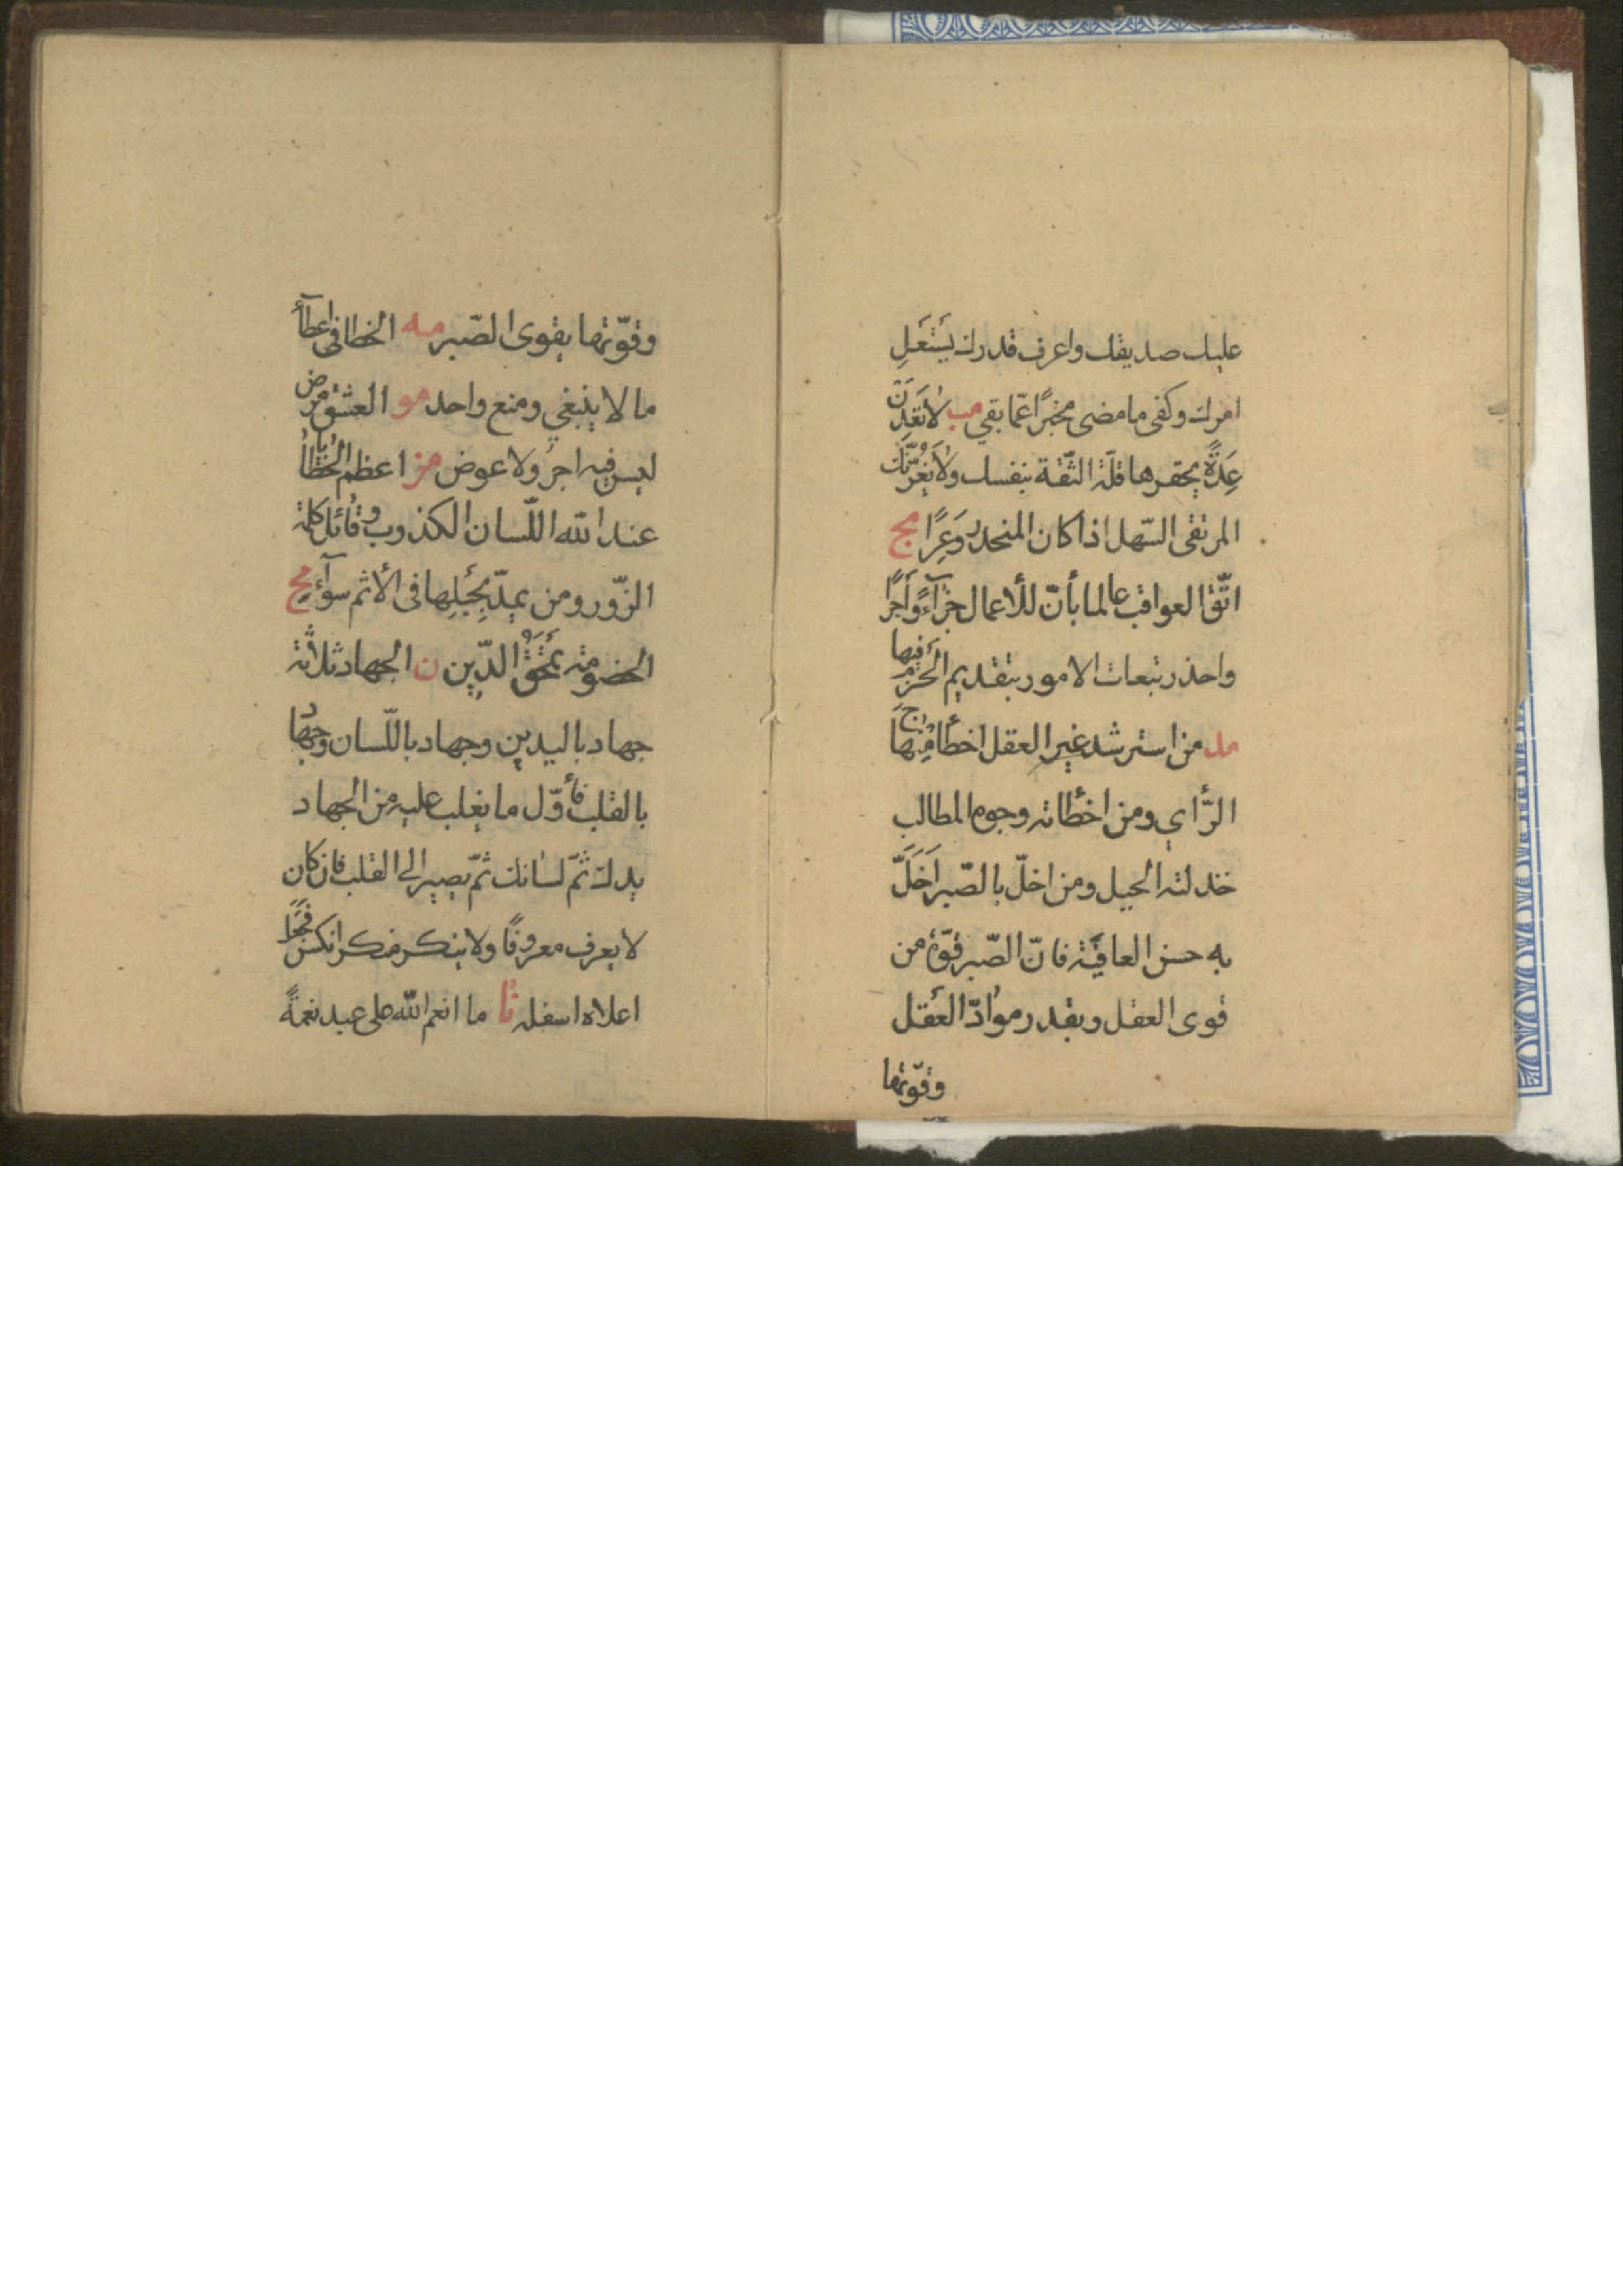 عليك صديقك واعرف قدرك يَسْتَعْلِ
امرك وكفى ما مضى مخبرًا عمّا بقي مب لا تَعِدَنَّ
عِدَةً يحقرها قلّة الثّقة بنفسك ولا يَغُرَّنَّكَ
المرتقى السّهل اذا كان المنحدر وَعِرًا مج
اتّق العواقب عالما بأنّ للأعمال جزآءً وأجرًا
واحذر تبعات الامور بتقديم الحَزْمِ فيها
مد من استرشد غير العقل اخطأ مِنْهاجَ
الرّأي ومن اخطأته وجوه المطالب
خذلته الحيل ومن اخلّ بالصّبر اَخَلَّ
به حسن العاقبة فانّ الصّبر قوّة من
قوى العقل وبقدر موادّ العقل
وقوّتها
وقوّتها يقوى الصّبر مه الخطا في اعطآء
ما لا ينبغي ومنع واحد مو العشق مرض
ليس فيه اجرٌ ولا عوض مز اعظم الخطايا
عند الله اللّسان الكذوب وقائل كلمة
الزّور ومن يمدّ بِحَبْلِها في الأثم سوآءٌ مح
الخصومة تَمْحَقُ الدّين ن الجهاد ثلاثة
جهاد باليدين وجهاد باللّسان وجهاد
بالقلب فأوّل ما يغلب عليه من الجهاد
يدك ثمّ لسانك ثمّ يصير الى القلب فان كان
لا يعرف معروفًا ولا ينكر منكرا نكس فَجُعِلَ
اعلاه اسفله نا ما انعم الله على عبد نعمةً